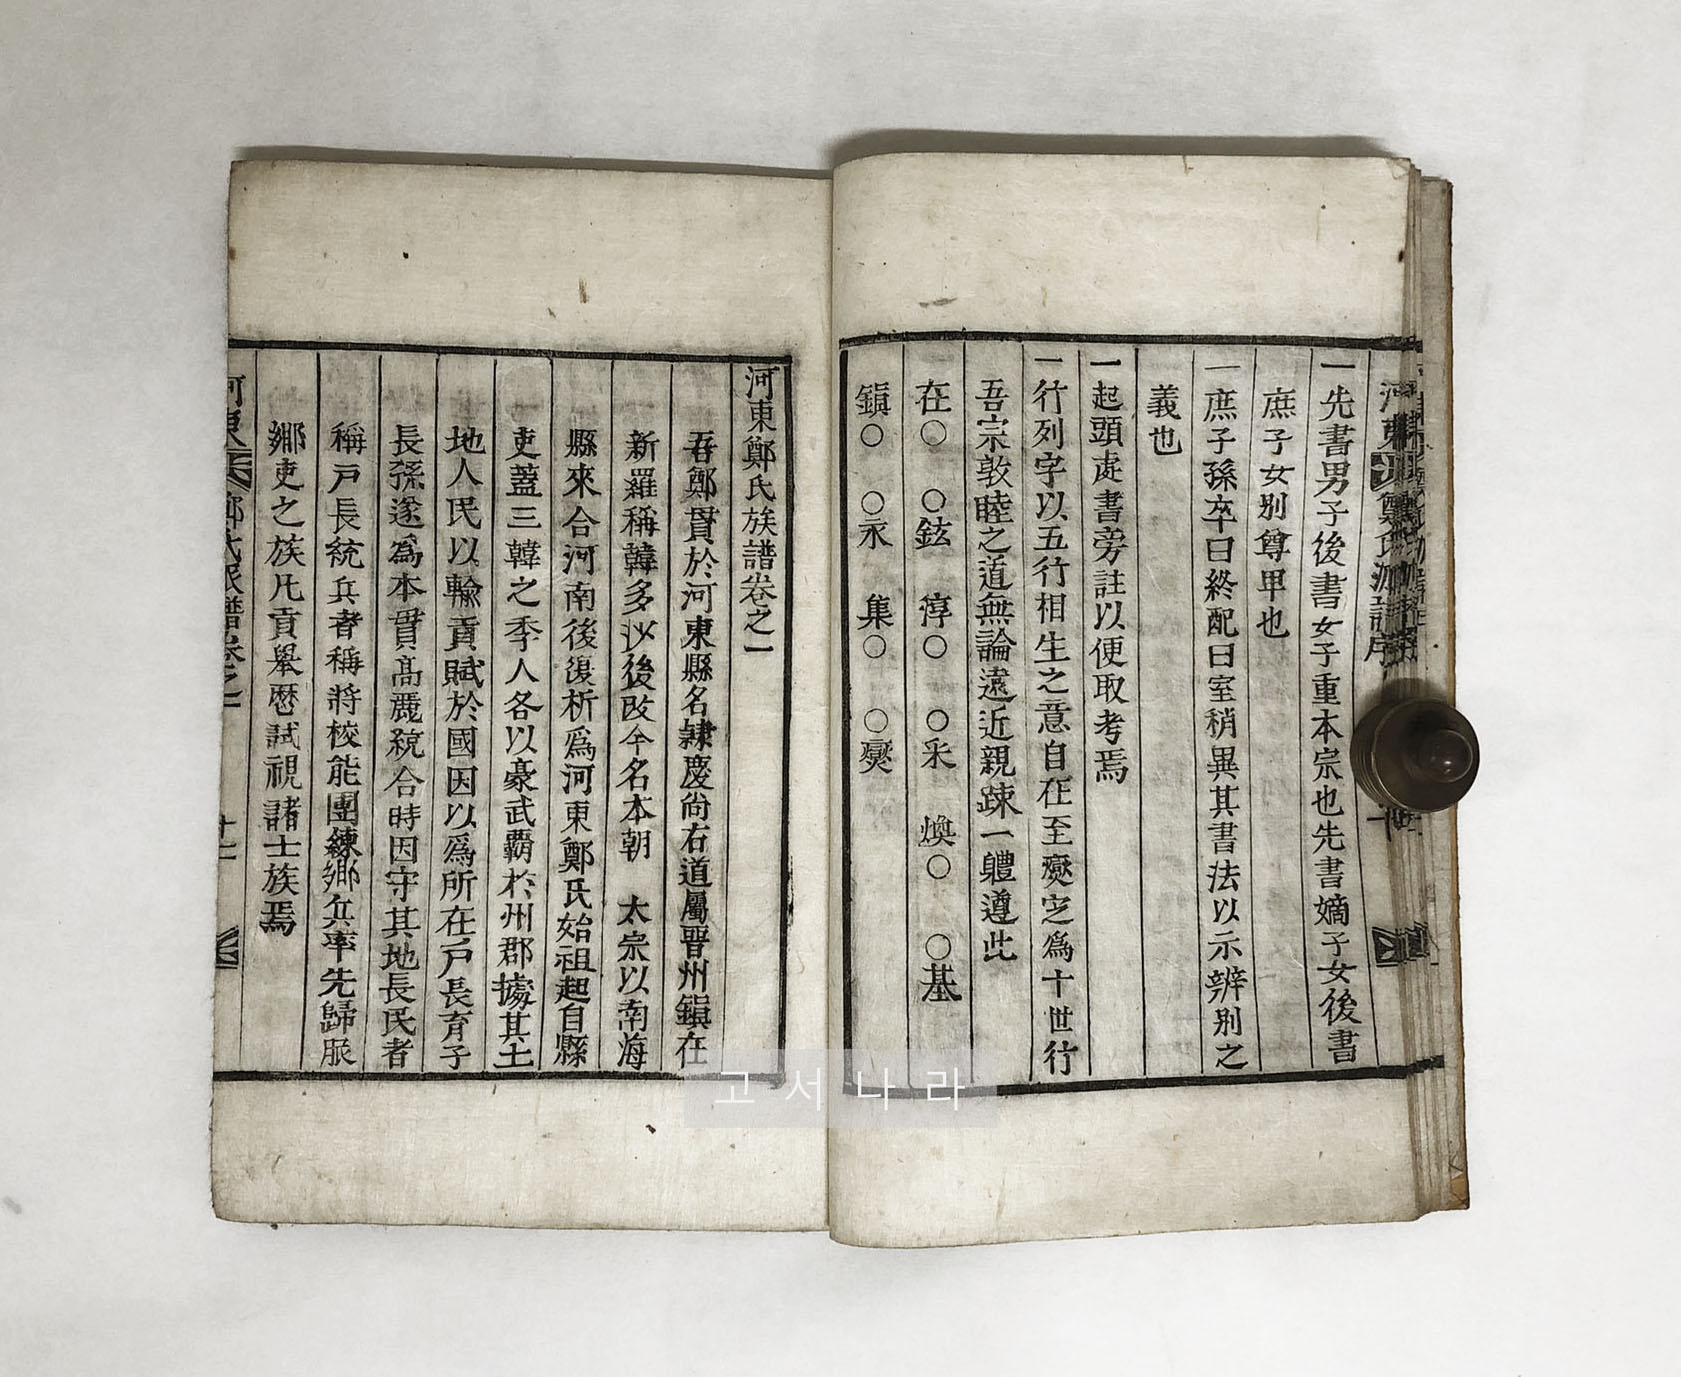 一先書男子後書女子重本宗也先書嫡子女後書
庶子女別尊卑也
一庶子孫卒曰終配曰室稍異其書法以示辨別之
義也
一起頭處書旁註以便取考焉
一行列字以五行相生之意自在至爕定爲十世行
吾宗敦睦之道無論遠近親踈一軆遵此
在○ ○鉉 淳○ ○釆 煥○ ○基
鎭○ ○永 集○ ○爕
河東鄭氏族譜卷之一
吾鄭貫於河東縣名隷慶尙右道屬晋州鎭在
新羅稱韓多沙後改今名本朝 太宗以南海
縣來合河南後復析爲河東鄭氏始祖起自縣
吏蓋三韓之季人各以豪武覇於州郡據其土
地人民以輸貢賦於國因以爲所在戶長育子
長孫遂爲本貫高麗統合時因守其地長民者
稱戶長統兵者稱將校能團練鄕兵率先歸服
鄕吏之族凡貢擧歷試視諸士族焉
河東 鄭氏派譜卷之一 十一
고서나라